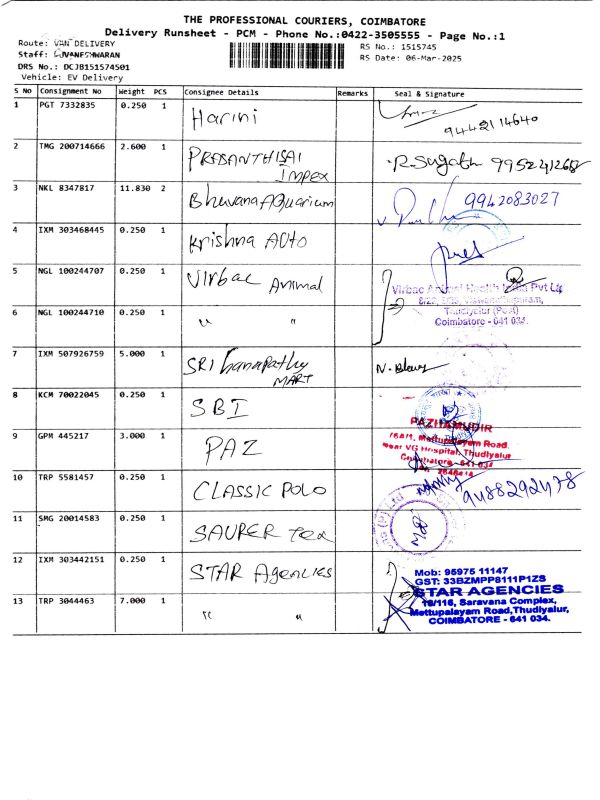 THE PROFESSIONAL COURIERS, COIMBATORE
Delivery Runsheet - PCM - Phone No.:0422-3505555 - Page No.:1
Route: VAN DELIVERY
Staff: BUVANESHWARAN
DRS No.: DCJB151574501
Vehicle: EV Delivery
RS No.: 1515745
RS Date: 06-Mar-2025
S No Consignment No Weight PCS Consignee Details Remarks Seal & Signature
1 PGT 7332835 0.250 1 Harini 9442114640
2 TMG 200714666 2.600 1 PRASANTHISAI IMPEX
3 NKL 8347817 11.830 2 Bhuvana AQuarium 9942083027
4 IXM 303468445 0.250 1 Krishna AUTO
5 NGL 100244707 0.250 1 Virbac Animal
Virbac Animal Health India Pvt Ltd
Thudiyalur (Post)
Coimbatore - 641 034.
6 NGL 100244710 0.250 1 " "
7 IXM 507926759 5.000 1 SRI Ganapathy MART
8 KCM 70022045 0.250 1 SBI
9 GPM 445217 3.000 1 PAZ
PAZHAMUDIR
Mettupalayam Road,
Near VG Hospital, Thudiyalur
Coimbatore - 641 034
10 TRP 5581457 0.250 1 CLASSIC POLO 9488292478
11 SMG 20014583 0.250 1 SAURER Tex
12 IXM 303442151 0.250 1 STAR Agencies
Mob: 95975 11147
GST: 33BZMPP8111P1ZS
STAR AGENCIES
19/116, Saravana Complex,
Mettupalayam Road,Thudiyalur,
COIMBATORE - 641 034.
13 TRP 3044463 7.000 1 " "